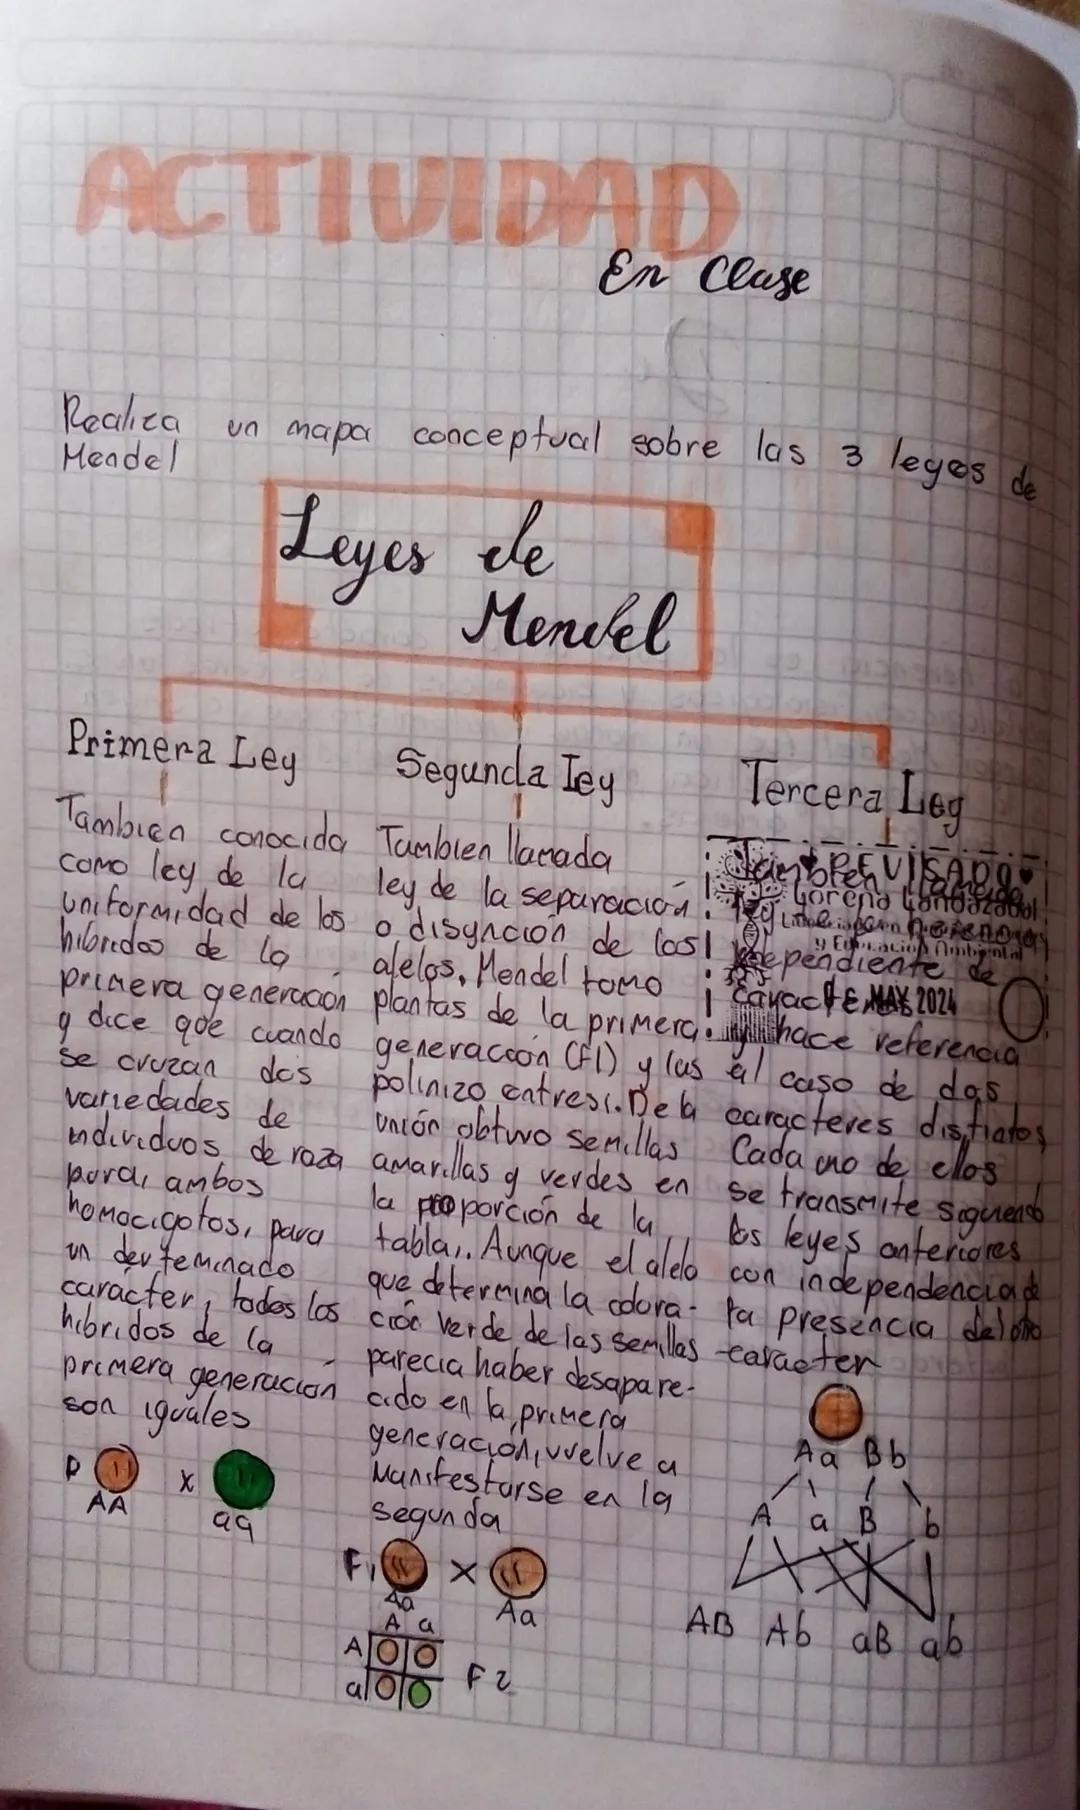 ACTIVIDAD
En Clase
Realiza un mapa conceptual sobre las 3 leyes de
Mendel
Leyes de
Mendel
Primera Ley
Tambien conocida
como ley de la
uniformidad de los
hibridos de la
primera generación
y dice que cuando
se cruzan dos
variedades de
individuos de raza
pura, ambos
homocigotos, para
un derteminado
caracter, todos los
hibridos de la
primera generación
son iguales
P x
AA aa
Segunda Ley
Tambien llamada
ley de la separación
o disynción de los
alelos. Mendel tomo
plantas de la primera
generacción (f1) y las
polinizo entresi. De la
unión obtuvo semillas
amarillas y verdes en
la proporción de la
tabla,. Aunque el alelo
que determina la colora-
ción verde de las semillas
parecia haber desapare-
cido en la primera
generación, vuelve a
Manifestarse en la
segunda
F1 x
Aa Aa
A a
A
a F2
Tercera Ley
Tambien llamada
REVISADO
Lorena
y Educación Ambiental
independiente de
MAY 2024
y hace referencia
al caso de dos
caracteres distintos
Cada uno de ellos
se transmite siguiendo
las leyes anteriores
con independencia de
la presencia del otro
caracter
Aa Bb
A a B b
AB Ab aB ab